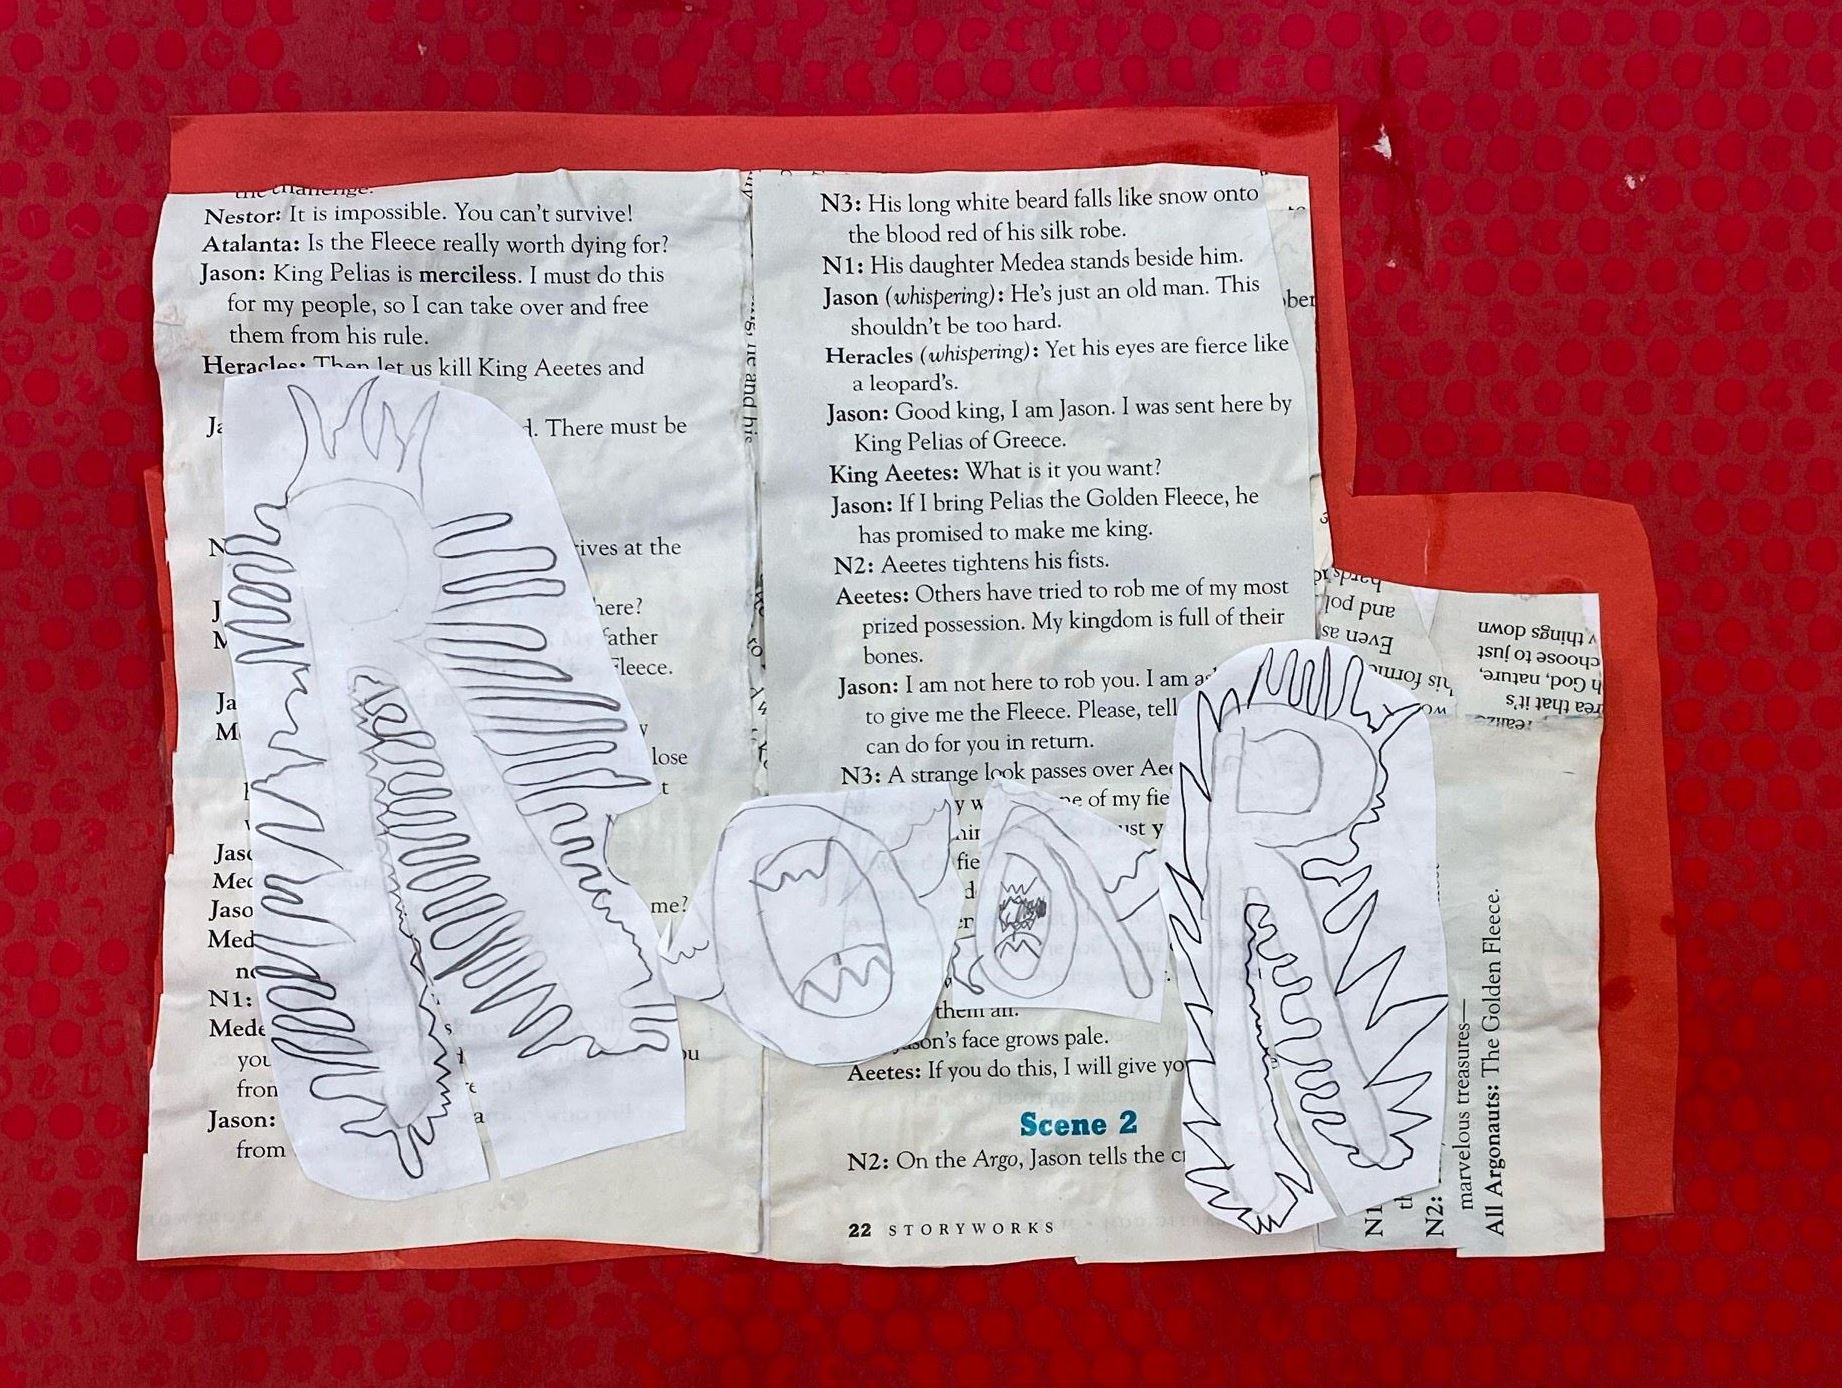 the challenge.
Nestor: It is impossible. You can't survive!
Atalanta: Is the Fleece really worth dying for?
Jason: King Pelias is merciless. I must do this
for my people, so I can take over and free
them from his rule.
Heracles: Then let us kill King Aeetes and
d. There must be
ives at the
here?
father
Fleece.
Ja
M
lose
t
Jaso
Med
me?
Jaso
Med
N1:
Mede
you
from
Jason:
from
he and his
N3: His long white beard falls like snow onto
the blood red of his silk robe.
N1: His daughter Medea stands beside him.
Jason (whispering): He's just an old man. This
shouldn't be too hard.
Heracles (whispering): Yet his eyes are fierce like
a leopard's.
Jason: Good king, I am Jason. I was sent here by
King Pelias of Greece.
King Aeetes: What is it you want?
Jason: If I bring Pelias the Golden Fleece, he
has promised to make me king.
N2: Aeetes tightens his fists.
Aeetes: Others have tried to rob me of my most
prized possession. My kingdom is full of their
bones.
Jason: I am not here to rob you. I am as
to give me the Fleece. Please, tell
can do for you in return.
N3: A strange look passes over Aee
y w ne of my fie
ust y
fie
them all.
son's face grows pale.
Aeetes: If you do this, I will give yo
Scene 2
N2: On the Argo, Jason tells the cr
22 STORYWORKS
ber
and pol
Even as
his former
wo
realize
rea that it's
h God, nature,
choose to just
y things down
N1
th
N2:
marvelous treasures—
All Argonauts: The Golden Fleece.